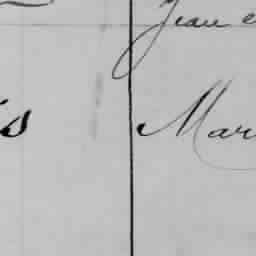 Jean e
is
Mar